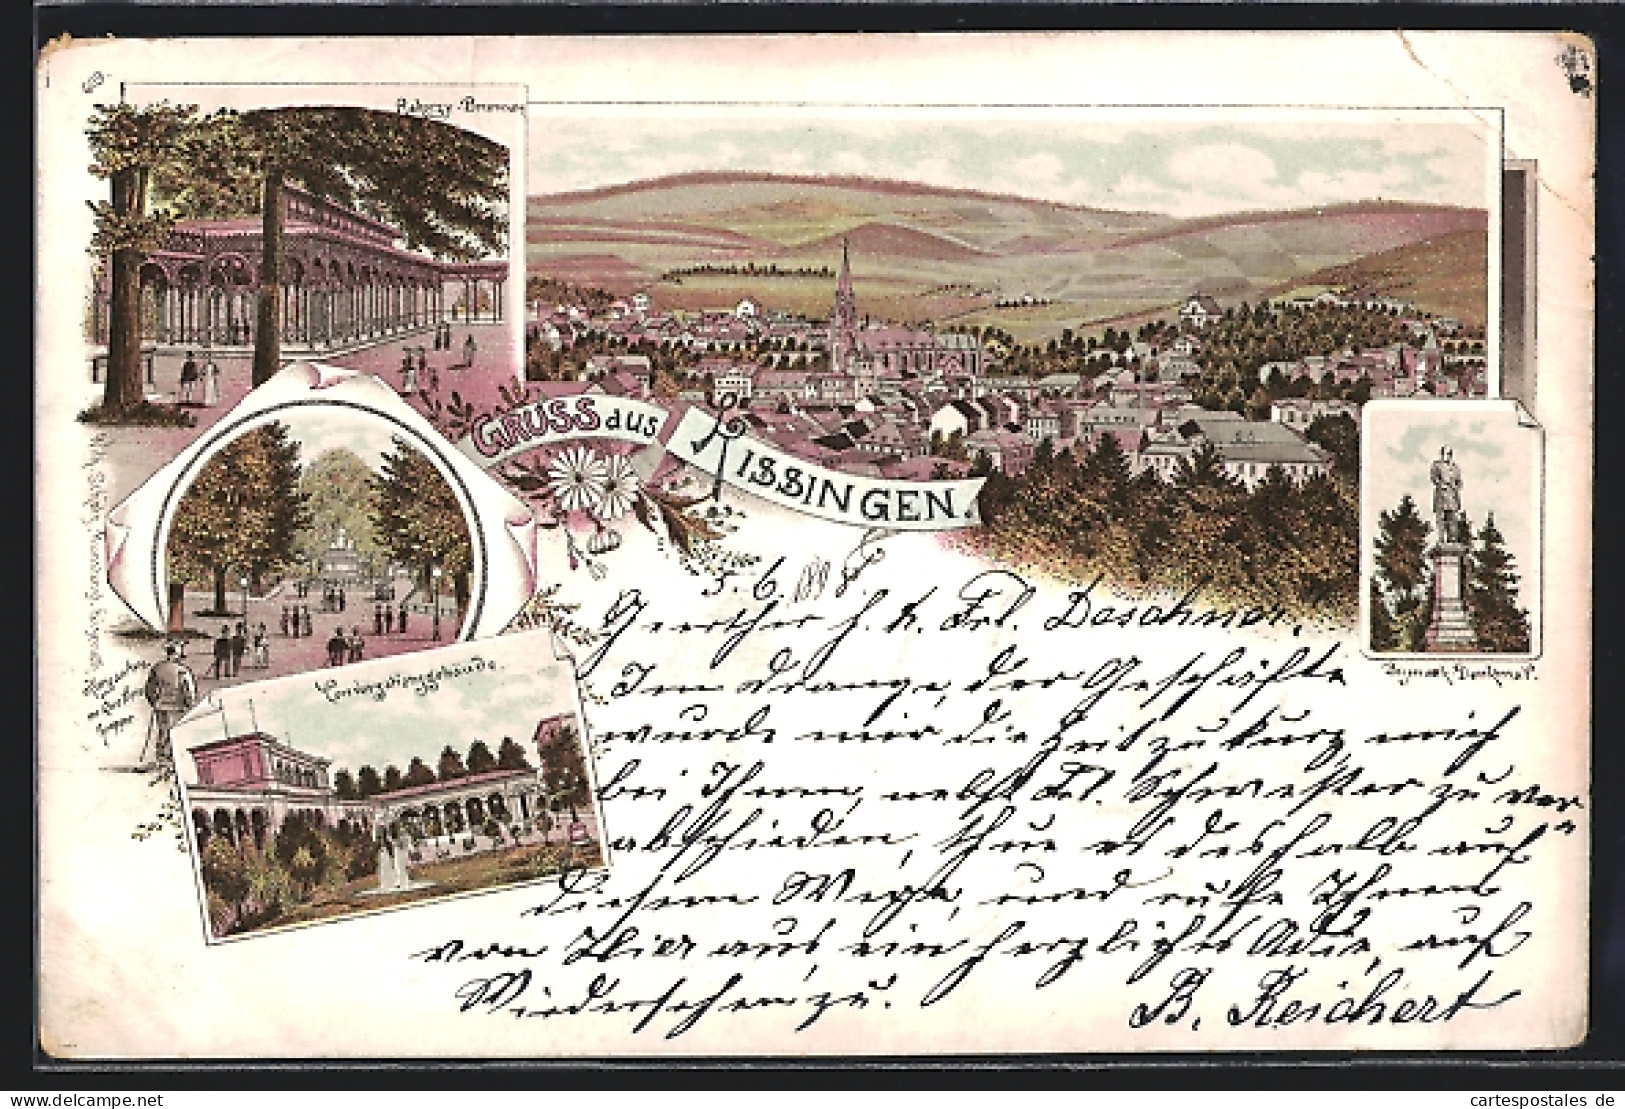 Rakoczy Brunnen
GRUSS aus
KISSINGEN.
Conversationsgebäude.
Bismarck Denkmal.
5. 6. 1898
Geerther H. u. Frl. Daschner.
Im Drange, der Geschäfte
wurde mir die Zeit zu kurz mich
bei Ihnen, nebst Frl. Schwester zu ver-
abschieden, thue es deshalb auf
diesem Wege, und rufe Ihnen
von Hier aus, ein herzliches Adie, auf
Wiedersehen zu.
B. Reichert
www.cartespostales.de
cartespostales de